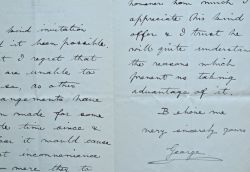 kind invitation
it been possible,
I regret that
are unable to
so, as other
arrangements have
made for some
time since &
it would cause
inconvenience
were they to
honour how much I
appreciate his kind
offer & I trust he
will quite understand
the reasons which
prevent us taking
advantage of it.
Believe me
very sincerely yours
George